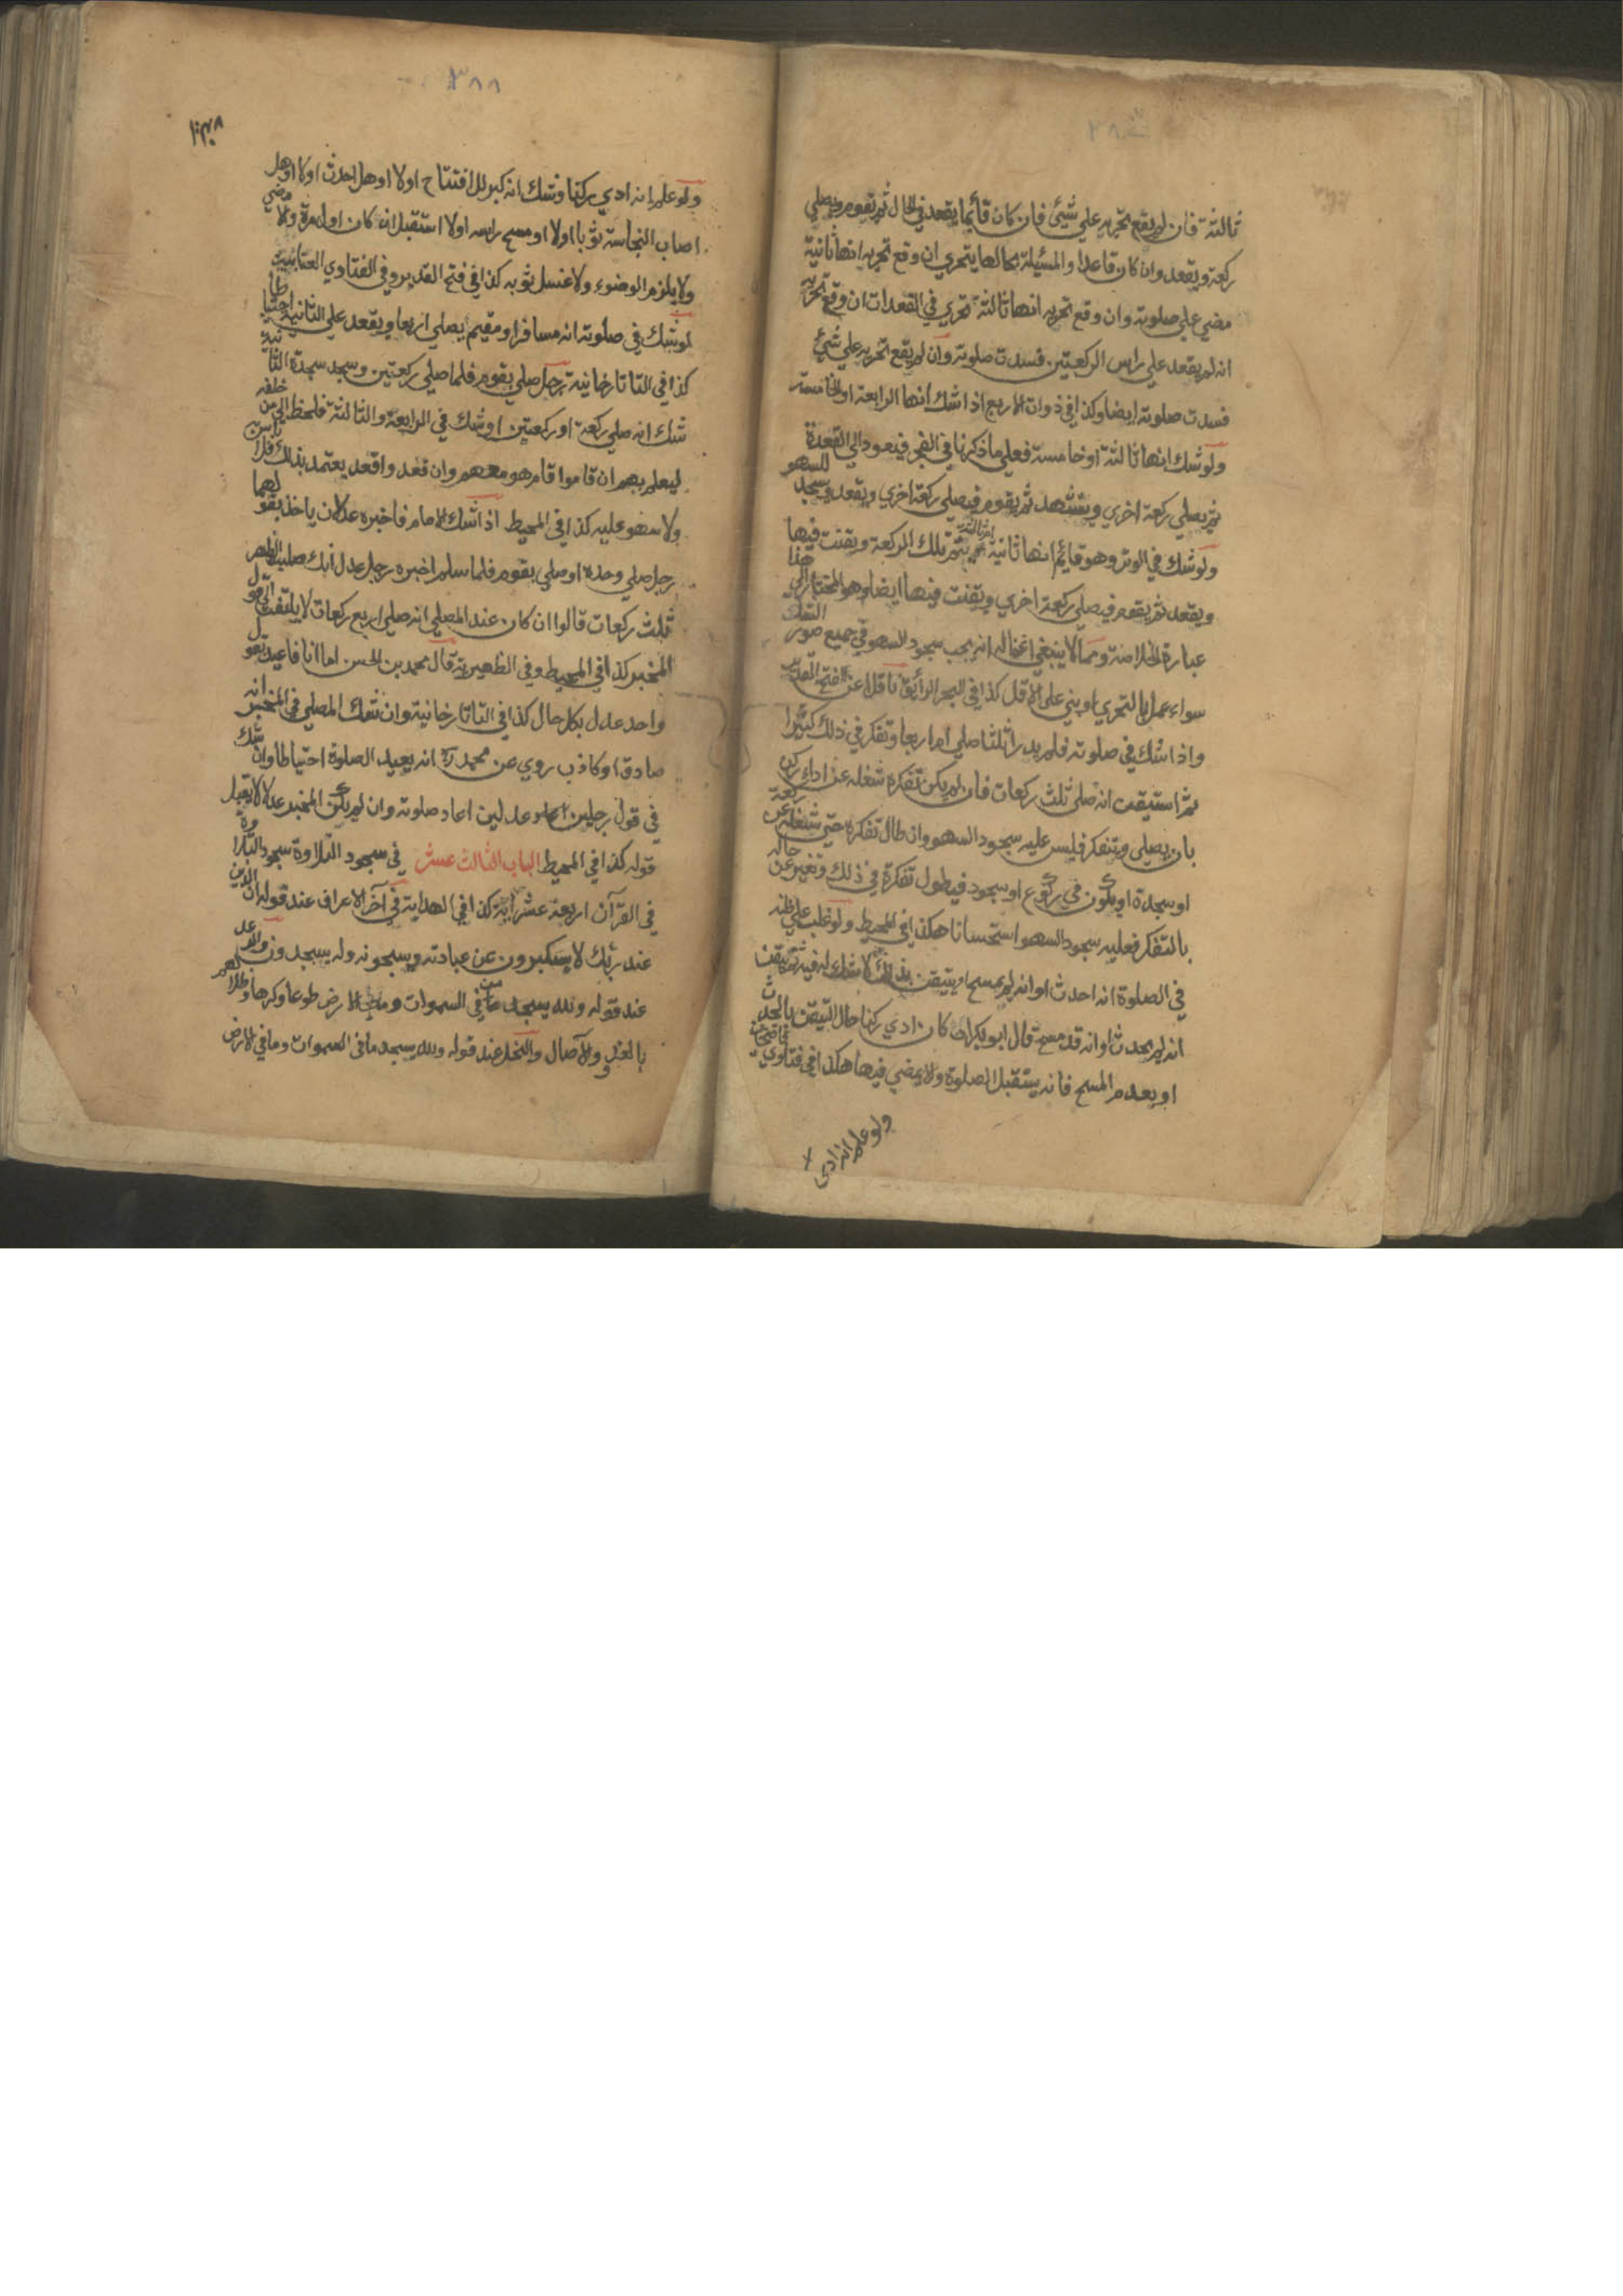 ثالثة فان لم يقع تحريه علي شيئ فان كان قائما يقعد في الحال ثم يقوم ويصلي
ركعة ويقعد وان كان قاعدا والمسئلة بحالها يتحري ان وقع تحريه انها ثانية
مضي علي صلوته وان وقع تحريه انها ثالثة تحري في القعدات ان وقع تحريه
انه لم يقعد علي راس الركعتين فسدت صلوته وان لم يقع تحريه علي شيئ
فسدت صلوته ايضا وكذا في ذوات الاربع اذا شك انها الرابعة او الخامسة
ولو شك انها ثالثة او خامسة فعلي ما ذكرنا في الفجر فيعود الي القعدة
ثم يصلي ركعة اخري ويتشهد ثم يقوم فيصلي ركعة اخري ويقعد ويسجد للسهو
ولو شك في الوتر وهو قائم انها ثانية ام ثالثة يتم تلك الركعة ويقنت فيها
ويقعد ثم يقوم فيصلي ركعة اخري ويقنت فيها ايضا وهو المختار الي هنا
عبارة الخلاصة ومما لا ينبغي اغفاله انه يجب سجود السهو في جميع صور الشك
سواء عمل بالتحري او بني علي الاقل كذا في البحر الرائق ناقلا عن فتح القدير
واذا شك في صلوته فلم يدر اثلثا صلي ام اربعا وتفكر في ذلك كثيرا
ثم استيقن انه صلي ثلث ركعات فان لم يكن تفكره شغله عن اداء ركن
بان يصلي ويتفكر فليس عليه سجود السهو وان طال تفكره حتي شغله عن ركعة
او سجدة او يكون في ركوع او سجود فيطول تفكره في ذلك وتغير عن حاله
بالتفكر فعليه سجود السهو استحسانا هكذا في المحيط ولو غلب علي ظنه
في الصلوة انه احدث او انه لم يمسح او تيقن بذلك لا شك له فيه ثم تيقن
انه لم يحدث او انه قد مسح قال ابو بكر ان كان ادي ركنا حال التيقن بالحدث
او بعدم المسح فانه يستقبل الصلوة ولا يمضي فيها هكذا في فتاوي قاضيخان
ولو علم انه ادي
٣٨٨
ولو علم انه ادي ركنا وشك انه كبر للافتتاح اولا او هل احدث اولا او هل
اصاب النجاسة ثوبا اولا او مسح راسه اولا استقبل ان كان اول مرة والا مضي
ولا يلزم الوضوء ولا غسل ثوبه كذا في فتح القدير وفي الفتاوي العتابية
لو شك في صلوته انه مسافر او مقيم يصلي اربعا ويقعد علي الثانية احتياطا
كذا في التاتارخانية رجل صلي بقوم فلما صلي ركعتين وسجد سجدة الثانية
شك انه صلي ركعة او ركعتين او شك في الرابعة والثالثة فلحظ الي من خلفه
ليعلم بهم ان قاموا قام هو معهم وان قعدوا قعد يعتمد بذلك فلا باس به
ولا سهو عليه كذا في المحيط اذا شك الامام فاخبره عدلان ياخذ بقولهما
رجل صلي وحده او صلي بقوم فلما سلم اخبره رجل عدل انك صليت الظهر
ثلث ركعات قالوا ان كان عند المصلي انه صلي اربع ركعات لا يلتفت الي قول
المخبر كذا في المحيط وفي الظهيرية قال محمد بن الحسن اما انا فاعيد بقول
واحد عدل بكل حال كذا في التاتارخانية وان شك المصلي في المخبر انه
صادق او كاذب روي عن محمد رح انه يعيد الصلوة احتياطا وان شك
في قول رجلين عدلين اعاد صلوته وان لم يكن المخبر عدلا لا يقبل
قوله كذا في المحيط الباب الثالث عشر في سجود التلاوة سجود التلاوة
في القرآن اربعة عشر آية كذا في الهداية في آخر الاعراف عند قوله ان الذين
عند ربك لا يستكبرون عن عبادته ويسبحونه وله يسجدون والرعد
عند قوله ولله يسجد من في السموات والارض طوعا وكرها وظلالهم
بالغدو والآصال والنحل عند قوله ولله يسجد ما في السموات وما في الارض